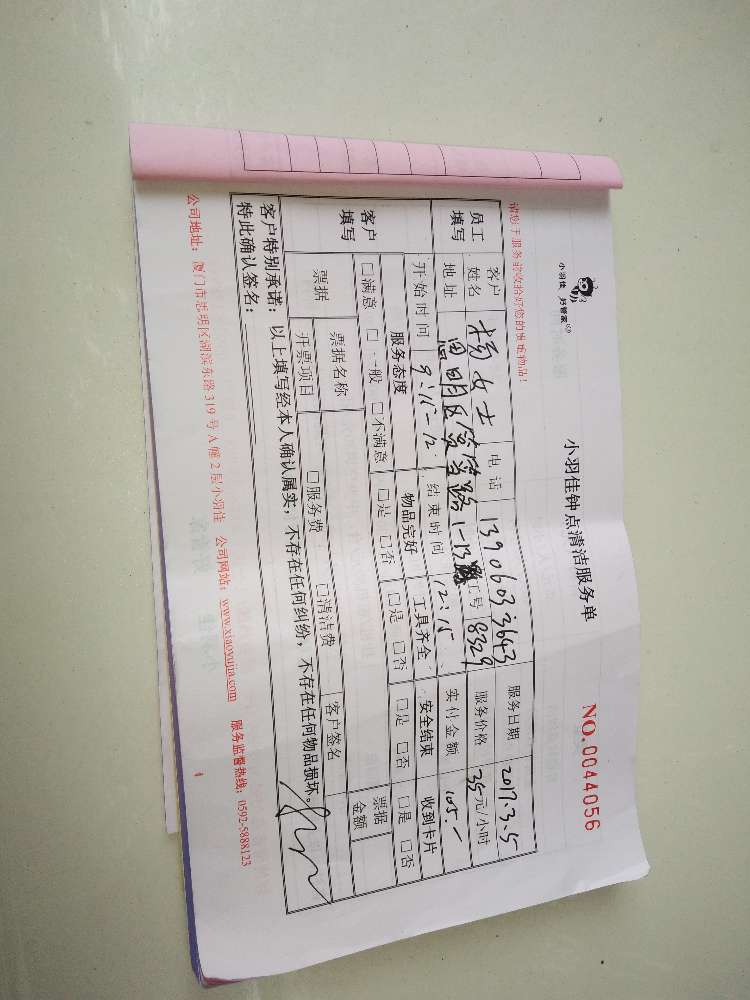 小羽佳 好管家
小羽佳钟点清洁服务单
NO.0044056
请您于服务前收拾好您的贵重物品!
员工填写 客户姓名 杨女士 电话 13906033643 服务日期 2017.3.15
地址 思明区 路1-13 工号 8329 服务价格 35元/小时
开始时间 9:15-12 结束时间 12:15 实付金额 105.-
客户填写 服务态度 物品完好 工具齐全 安全结束 收到卡片
□满意 □一般 □不满意 □是 □否 □是 □否 □是 □否 □是 □否
票据 票据名称 □服务费 □清洁费 客户签名 票据金额
开票项目
客户特别承诺: 以上填写经本人确认属实,不存在任何纠纷,不存在任何物品损坏。
特此确认签名:
公司地址: 厦门市思明区湖滨东路319号A幢2层小羽佳 公司网站: www.xiaoyujia.com 服务监督热线: 0592-5888123